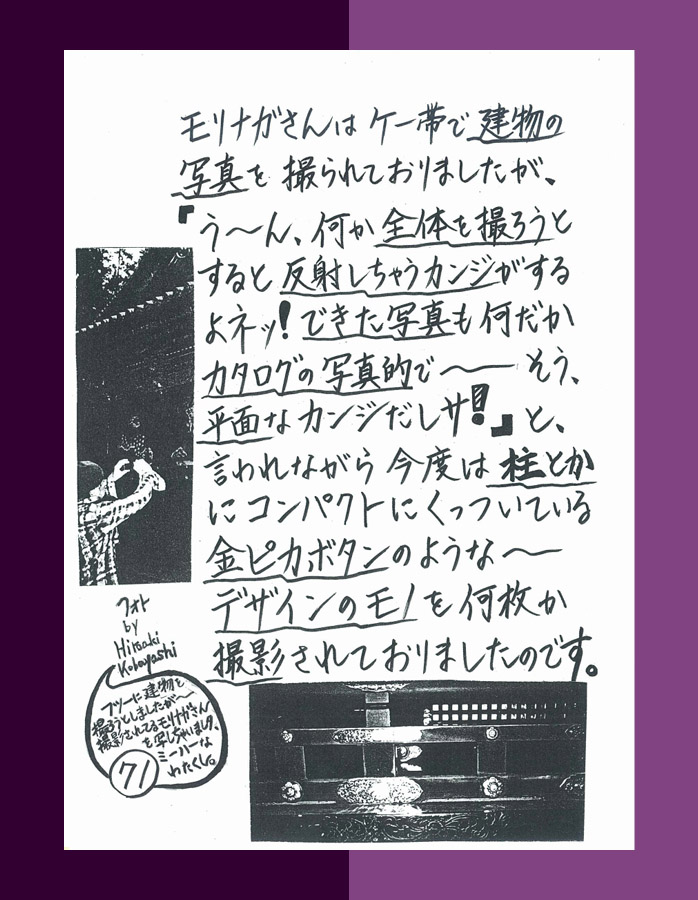 モリナガさんは ケー帯で 建物の
写真を 撮られておりましたが、
「う〜ん、何か 全体を撮ろうと
すると 反射しちゃうカンジがする
よネッ!できた写真も何だか
カタログの写真的で〜 そう、
平面なカンジだしサ!」と、
言われながら 今度は 柱とか
にコンパクトにくっついている
金ピカボタンのような〜
デザインのモノを何枚か
撮影されておりましたのです。
フォト
by
Hiroaki
Kobayashi
フツーに建物を
撮ろうとしましたが〜
撮影されてるモリナガさん
を写しちゃいまし
ミーハーな
わたくし。
71